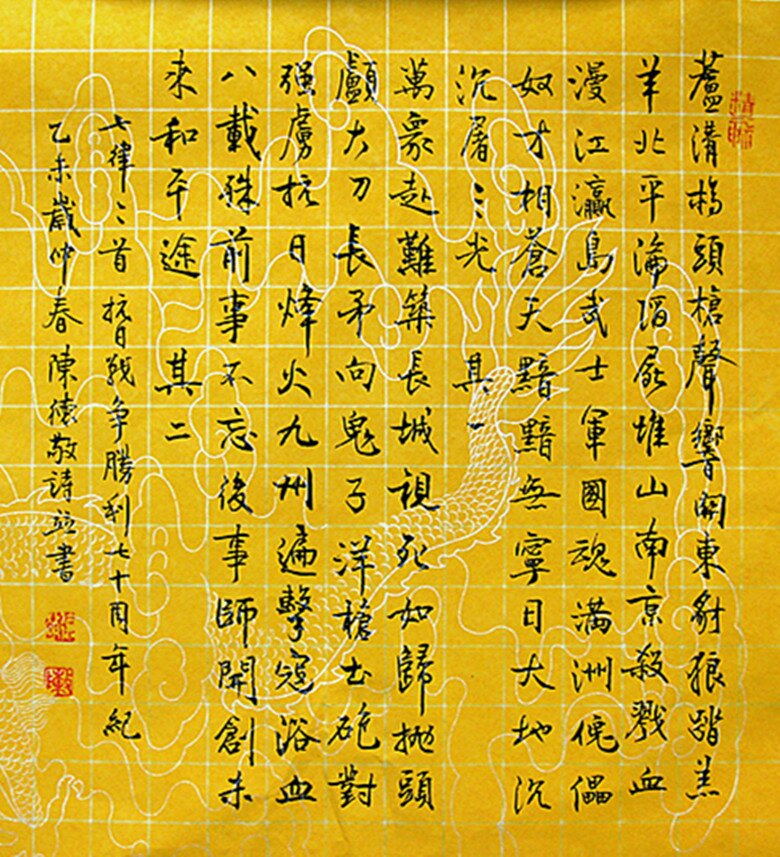 蘆溝橋頭槍聲響關東豺狼踏羔
羊北平淪陷屍堆山南京殺戮血
漫江瀛島武士軍國魂滿洲傀儡
奴才相蒼天黯黯無寧日大地沉
沉屠三光 其一
萬衆赴難築長城視死如歸拋頭
顱大刀長矛向鬼子洋槍土砲對
强虜抗日烽火九州遍擊寇浴血
八載殊前事不忘後事師開創未
來和平途 其二
七律二首 抗日戰争勝利七十周年紀
乙未歲仲春 陳德敬詩並書